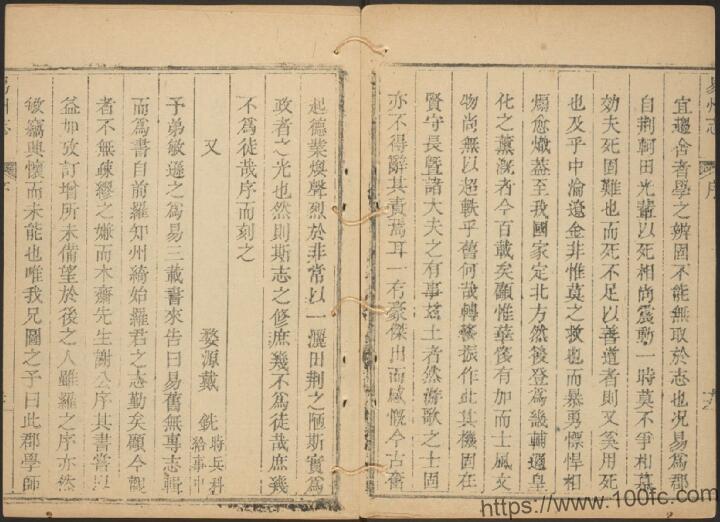 易州志 序
宜邇舍者學之辨固不能無取於志也况易爲郡
自荆軻田光輩以死相尚震動一時莫不爭相慕
効夫死固難也而死不足以善道者則又奚用死
也及乎中淪遼金非惟莫之救也而暴勇慓悍相
煽愈熾葢至我國家定北方然後登爲畿輔邇皇
化之薰漑者今百載矣顧惟華有加而士風文
物尚無以超軼乎舊何哉轉移振作此其機固在
賢守長曁諸大夫之有事兹土者然游歌之士固
亦不得辭其責焉耳一有豪傑出而感慨今古奮
起德業煥聲烈於非常以一灑田荆之陋斯實爲
政者之光也然則斯志之修庶幾不爲徒哉庶幾
不爲徒哉序而刻之
又
婺源戴 銑 兵科給事中
予弟敏遜之爲易三載書來告曰易舊無專志輯
而爲書自前羅知州綺始羅君之志勤矣顧今觀
者不無疎繆之嫌而木齋先生謝公序其書嘗以
益加攷訂增所未備望於後之人雖羅之序亦然
敏竊興懷而未能也唯我兄圖之予曰此郡學師
易州志 序
https://www.100fc.com